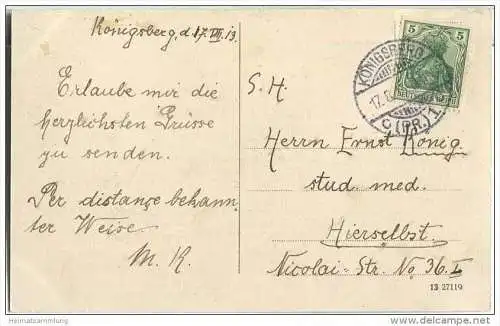 Königsberg, d. 17. VII. 13.
Erlaube mir die
herzlichsten Grüsse
zu senden.
Per distance bekann-
ter Weise
M. K.
S. H.
Herrn Ernst König.
stud. med.
Hierselbst.
Nicolai-Str. No 36. I
5 5
KÖNIGSBERG
17.
(PR.)
13 27119
Heimatsammlung
www.delcampe.net